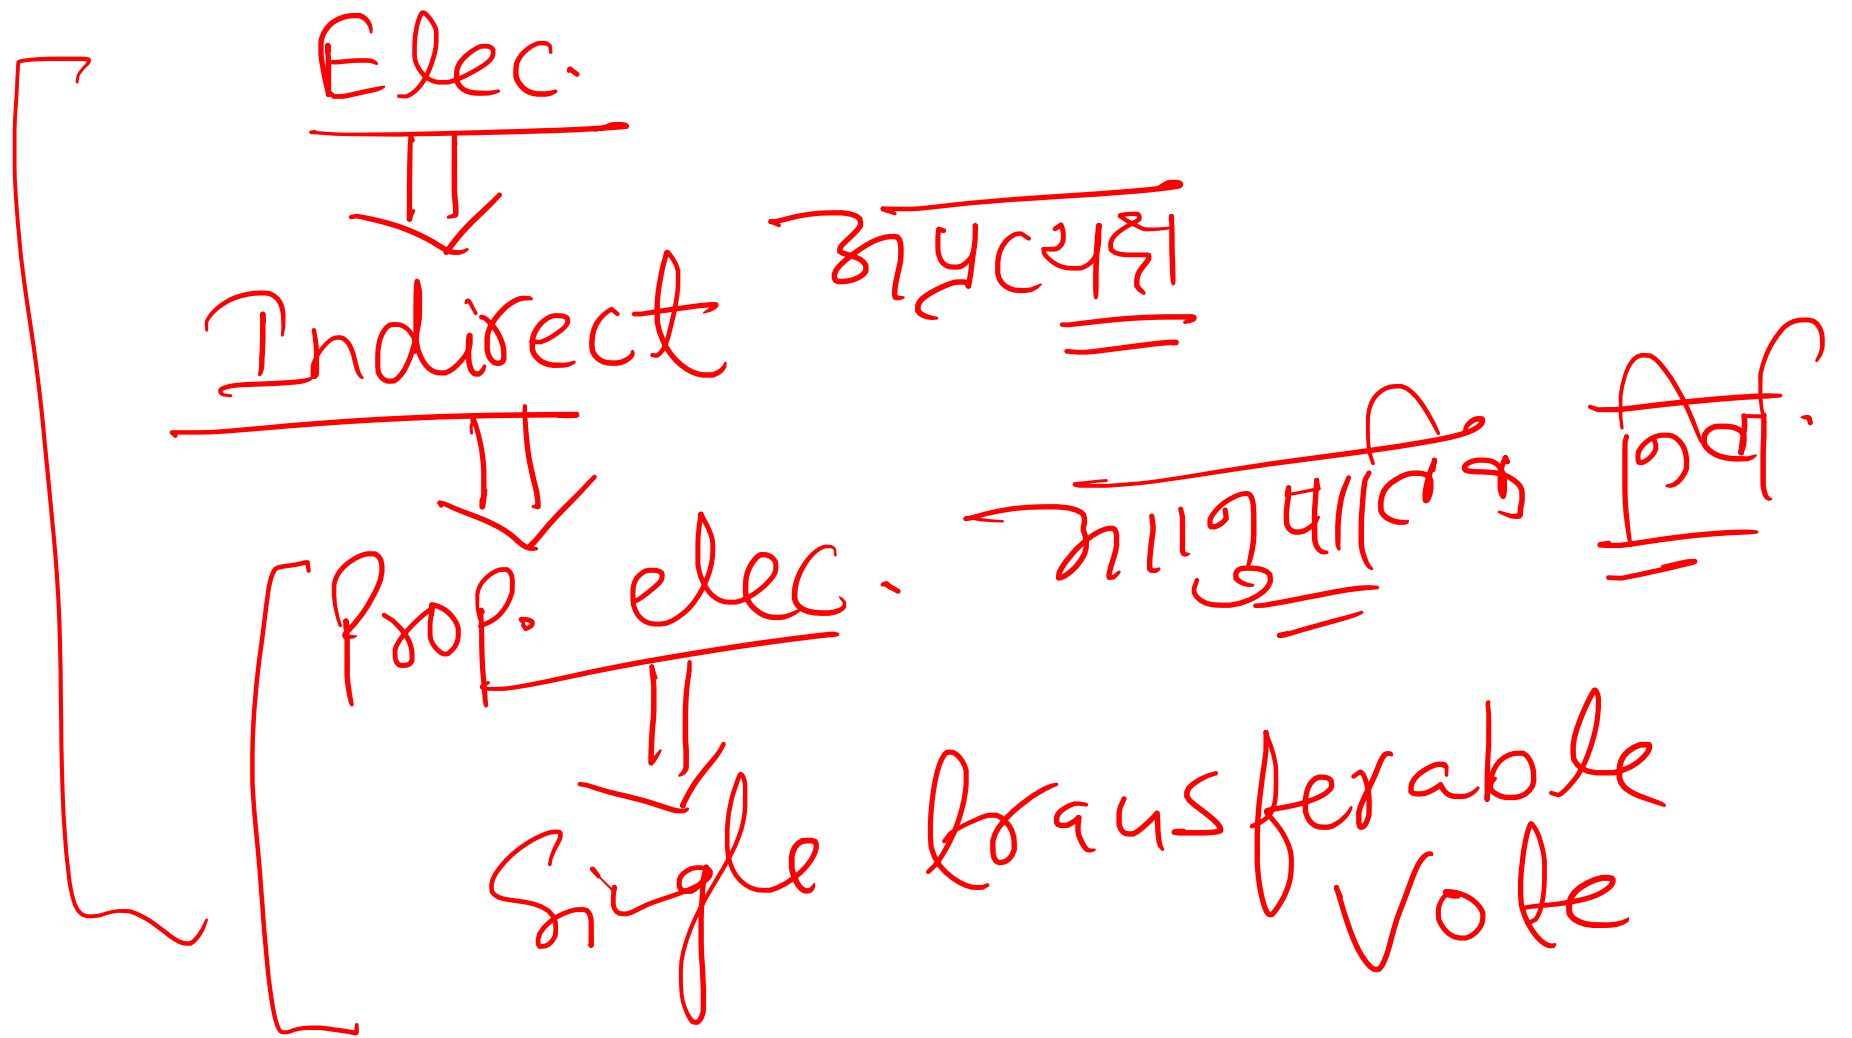 Elec.
Indirect अप्रत्यक्ष
Prop. elec. आनुपातिक निर्वा.
Single transferable
Vote